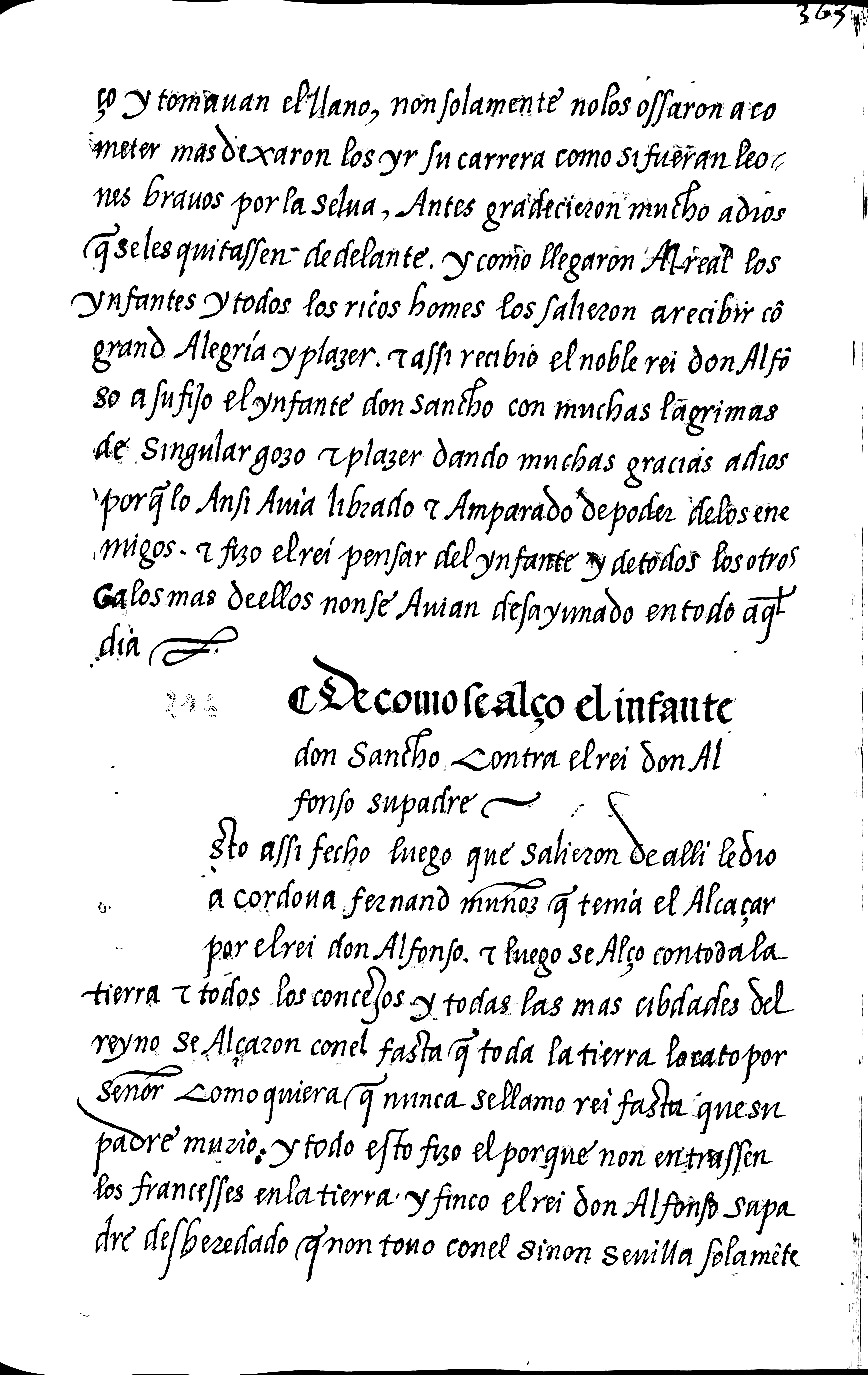 363
ço y tomauan el llano, non solamente no los ossaron aco
meter mas dexaron los yr su carrera como si fueran leo-
nes brauos por la selua, Antes gradecieron mucho a dios
q̃ se les quitassen de delante. y como llegaron Al real los
ynfantes y todos los ricos homes los salieron a recibir cõ
grand Alegría y plazer. τ assi recibio el noble rei don Alfõ
so a su fijo el ynfante don Sancho con muchas lagrimas
de Singular gozo τ plazer dando muchas gracias a dios
porq̃ lo Ansi Auia librado τ Amparado de poder de los ene
migos. τ fizo el rei pensar del ynfante y de todos los otros
Ca los mas de ellos non se Auian desayunado en todo aq̃l
dia
242
¶ De como se alço el infante
don Sancho Contra el rei don Al
fonso su padre
Esto assi fecho luego que Salieron de alli le dio
a Cordoua fernand muñoz q̃ tenia el Alcaçar
por el rei don Alfonso. τ luego se Alço con toda la
tierra τ todos los concejos y todas las mas cibdades del
reyno se Alçaron con el fasta q̃ toda la tierra lo cato por
Señor Como quiera q̃ nunca se llamo rei fasta que su
padre murio. y todo esto fizo el porque non entrassen
los francesses en la tierra. y finco el rei don Alfonso su pa
dre desheredado q̃ non touo con el Sinon Seuilla solamẽte